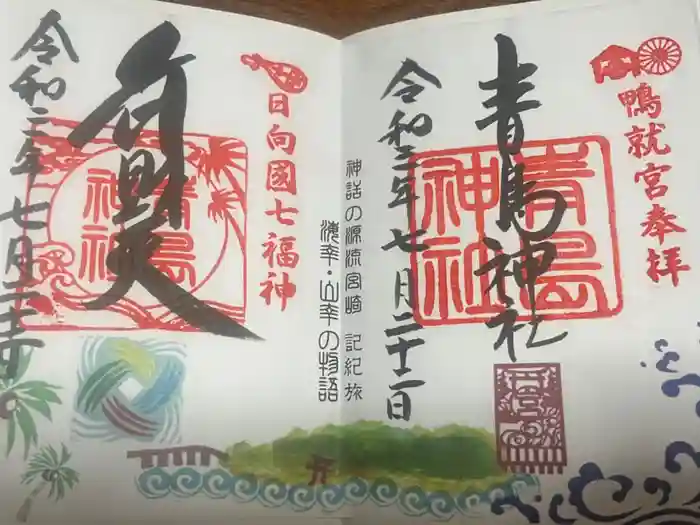 鴨就宮奉拝
青島神社
青島
神社
令和三年七月二十二日
神話の源流宮崎 記紀旅
海幸・山幸の物語
日向國七福神
弁財天
青島
神社
令和三年七月二十二日